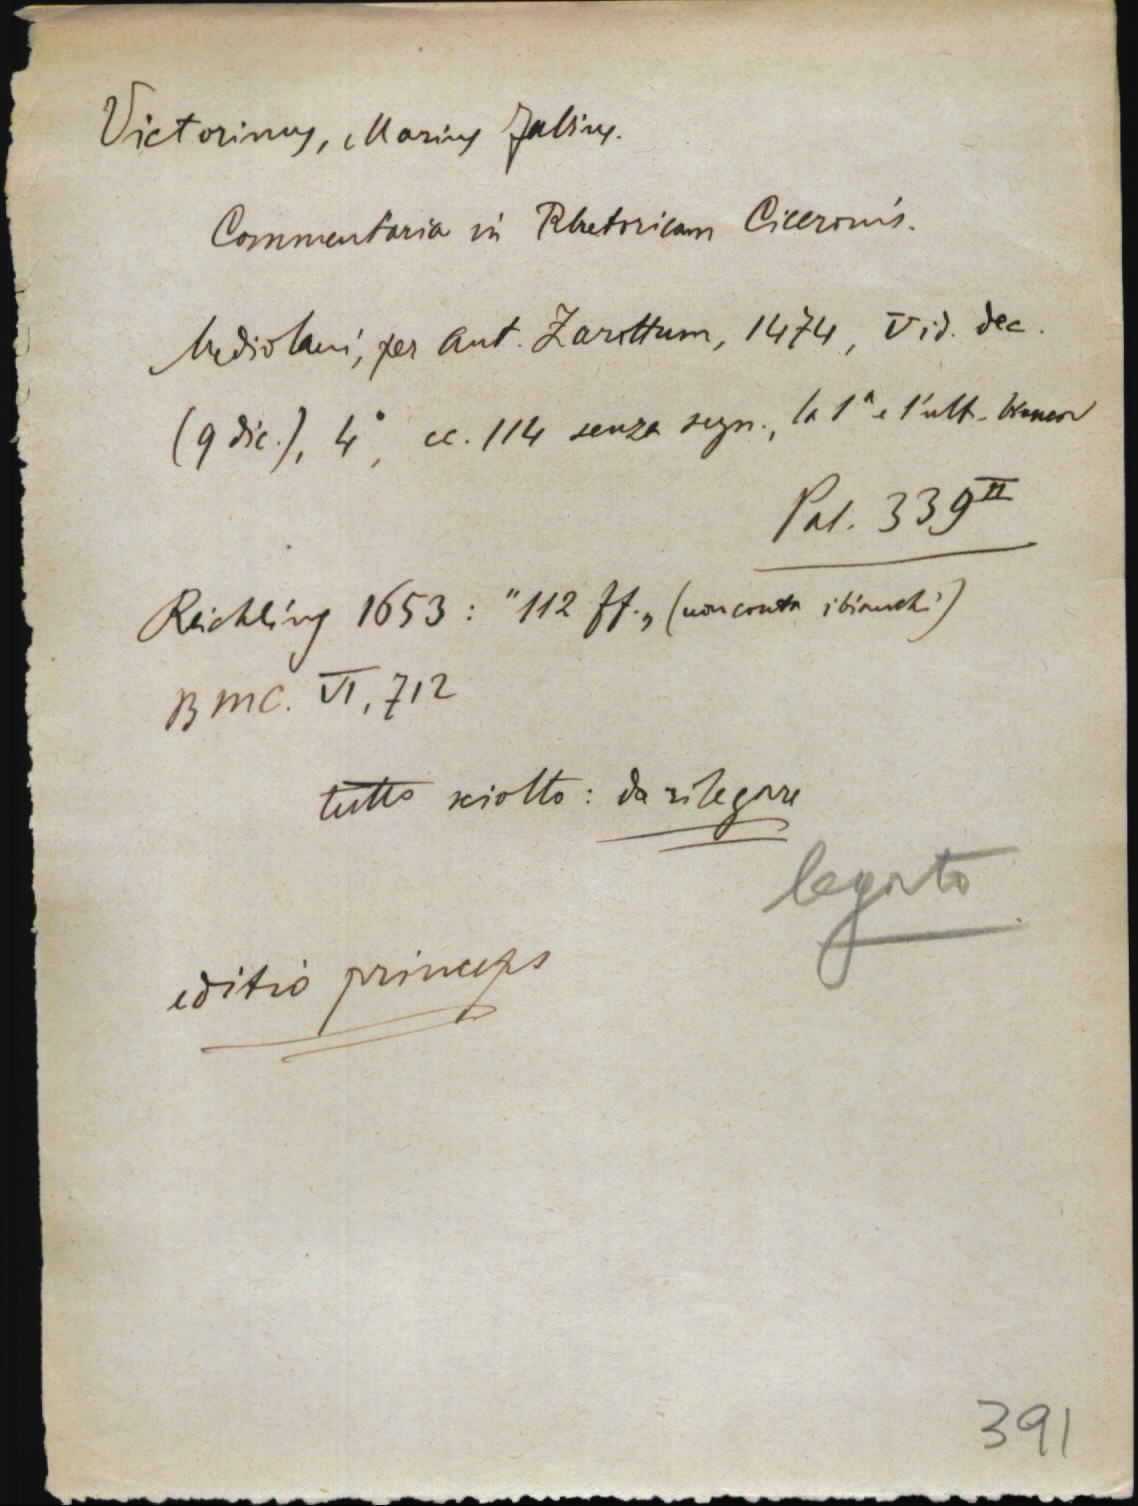 Victorinus, Marius Fabius.
Commentaria in Rhetoricam Ciceronis.
Mediolani, per Ant. Zarottum, 1474, V id. dec.
(9 dic.), 4°, cc. 114 senza segn., la 1ª e l'ult.
Pal. 339 II
Reichling 1653: "112 ff.„ (non conta i bianchi)
BMC. VI, 712
tutto sciolto: da rilegare
legato
editio princeps
391